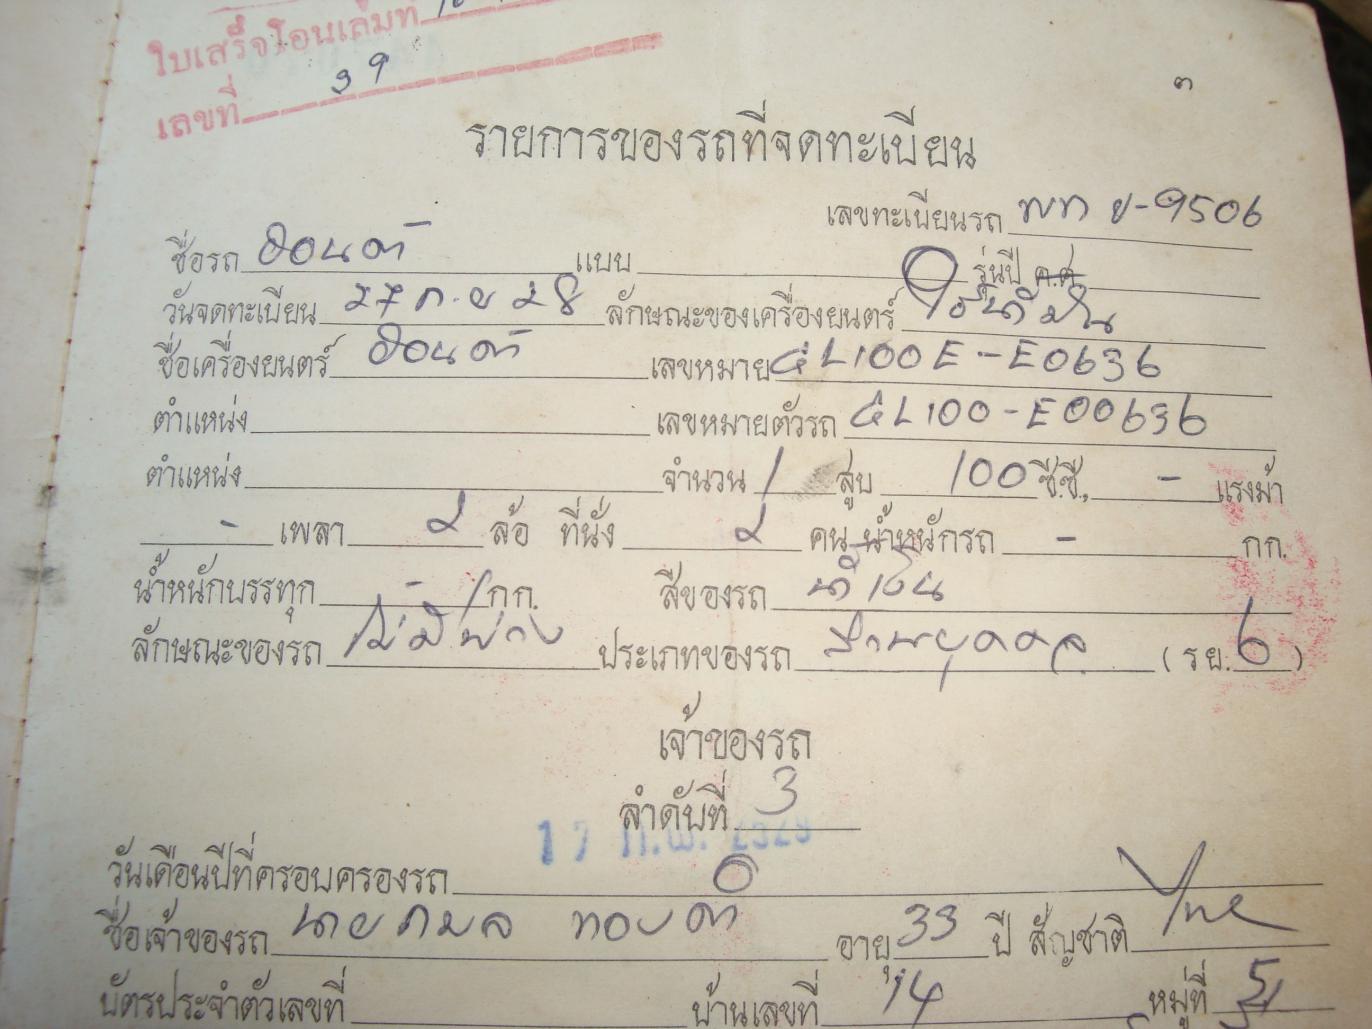 ใบเสร็จโอนเล่มที่
เลขที่ 39
๓
รายการของรถที่จดทะเบียน
เลขทะเบียนรถ พท ข-9506
ชื่อรถ ฮอนด้า แบบ รุ่นปี ค.ศ.
วันจดทะเบียน 27 ก.ย 28 ลักษณะของเครื่องยนต์ ใช้น้ำมัน
ชื่อเครื่องยนต์ ฮอนด้า เลขหมาย GL100E-E0636
ตำแหน่ง เลขหมายตัวรถ GL100-E00636
ตำแหน่ง จำนวน 1 สูบ 100 ซี.ซี., - แรงม้า
- เพลา 2 ล้อ ที่นั่ง 2 คน น้ำหนักรถ - กก.
น้ำหนักบรรทุก - กก. สีของรถ น้ำเงิน
ลักษณะของรถ ไม่มีพ่วง ประเภทของรถ ส่วนบุคคล (รย. 6)
เจ้าของรถ
ลำดับที่ 3
17 ก.พ. 2528
วันเดือนปีที่ครอบครองรถ
ชื่อเจ้าของรถ นาย กมล ทองดี อายุ 33 ปี สัญชาติ ไทย
บัตรประจำตัวเลขที่ บ้านเลขที่ 14 หมู่ที่ 5